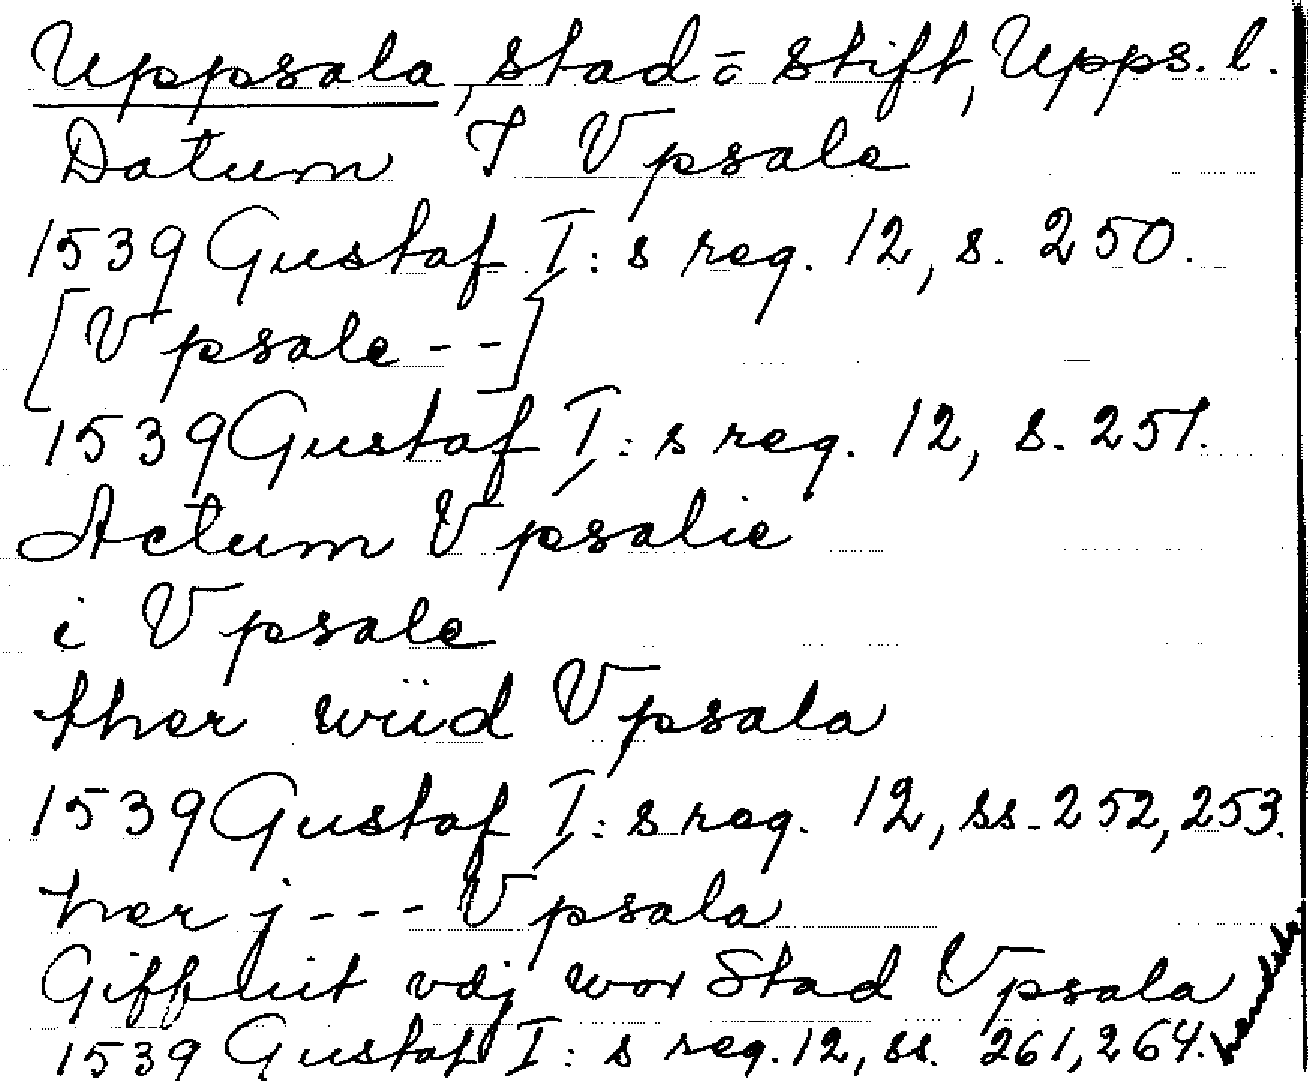 Uppsala, stad o stift, Upps. l.
Datum I Vpsale
1539 Gustaf I:s reg. 12, s. 250.
[Vpsale --]
1539 Gustaf I:s reg. 12, s. 251.
Actum Vpsalie
i Vpsale
ther wiid Vpsala
1539 Gustaf I:s reg. 12, ss. 252, 253.
her j --- Vpsala
Giffuit vdj wor Stad Vpsala
1539 Gustaf I:s reg. 12, ss. 261, 264.